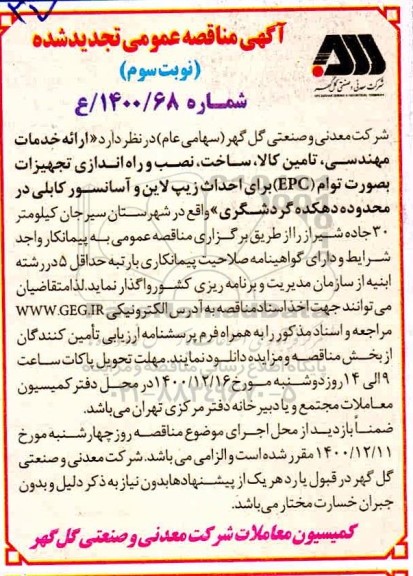 ۴۷
آگهی مناقصه عمومی تجدیدشده
(نوبت سوم)
شماره ۱۴۰۰/۶۸/ع
شرکت معدنی و صنعتی گل گهر
شرکت معدنی وصنعتی گل گهر (سهامی عام) در نظر دارد «ارائه خدمات
مهندسی، تامین کالا، ساخت، نصب و راه اندازی تجهیزات
بصورت توام (EPC) برای احداث زیپ لاین و آسانسور کابلی در
محدوده دهکده گردشگری» واقع در شهرستان سیرجان کیلومتر
۳۰ جاده شیراز را از طریق برگزاری مناقصه عمومی به پیمانکار واجد
شرایط و دارای گواهینامه صلاحیت پیمانکاری با رتبه حداقل ۵ در رشته
ابنیه از سازمان مدیریت و برنامه ریزی کشور واگذار نماید. لذا متقاضیان
می توانند جهت اخذ اسناد مناقصه به آدرس الکترونیکی WWW.GEG.IR
مراجعه و اسناد مذکور را به همراه فرم پرسشنامه ارزیابی تأمین کنندگان
از بخش مناقصه و مزایده دانلود نمایند. مهلت تحویل پاکات ساعت
۹ الی ۱۴ روز دوشنبه مورخ ۱۴۰۰/۱۲/۱۶ در محل دفتر کمیسیون
معاملات مجتمع و یا دبیرخانه دفتر مرکزی تهران می باشد.
ضمناً بازدید از محل اجرای موضوع مناقصه روز چهارشنبه مورخ
۱۴۰۰/۱۲/۱۱ مقرر شده است و الزامی می باشد. شرکت معدنی و صنعتی
گل گهر در قبول یا رد هر یک از پیشنهادها بدون نیاز به ذکر دلیل و بدون
جبران خسارت مختار می باشد.
کمیسیون معاملات شرکت معدنی و صنعتی گل گهر